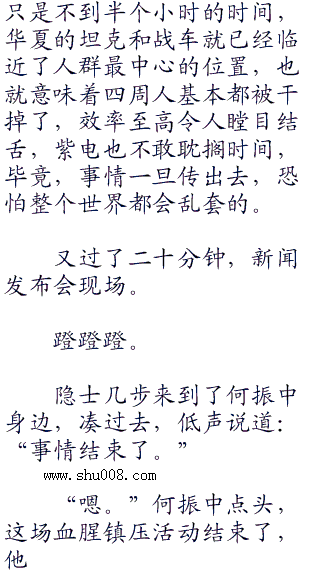 只是不到半个小时的时间，
华夏的坦克和战车就已经临
近了人群最中心的位置，也
就意味着四周人基本都被干
掉了，效率至高令人瞠目结
舌，紫电也不敢耽搁时间，
毕竟，事情一旦传出去，恐
怕整个世界都会乱套的。
又过了二十分钟，新闻
发布会现场。
蹬蹬蹬。
隐士几步来到了何振中
身边，凑过去，低声说道：
“事情结束了。”
www.shu008.com
“嗯。”何振中点头，
这场血腥镇压活动结束了，
他